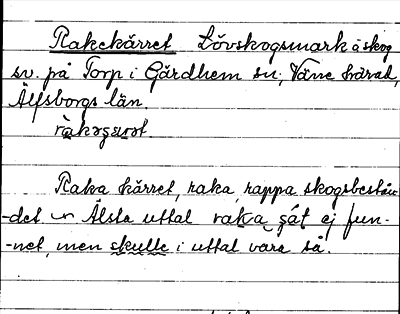 Rakekärret Lövskogsmark å skog
sv. på Torp i Gärdhem sn, Väne härad,
Älfsborgs län

Raka kärret, raka, rappa skogsbestån-
-det Älsta uttal raka ej fun-
-net, men skulle i uttal vara så.